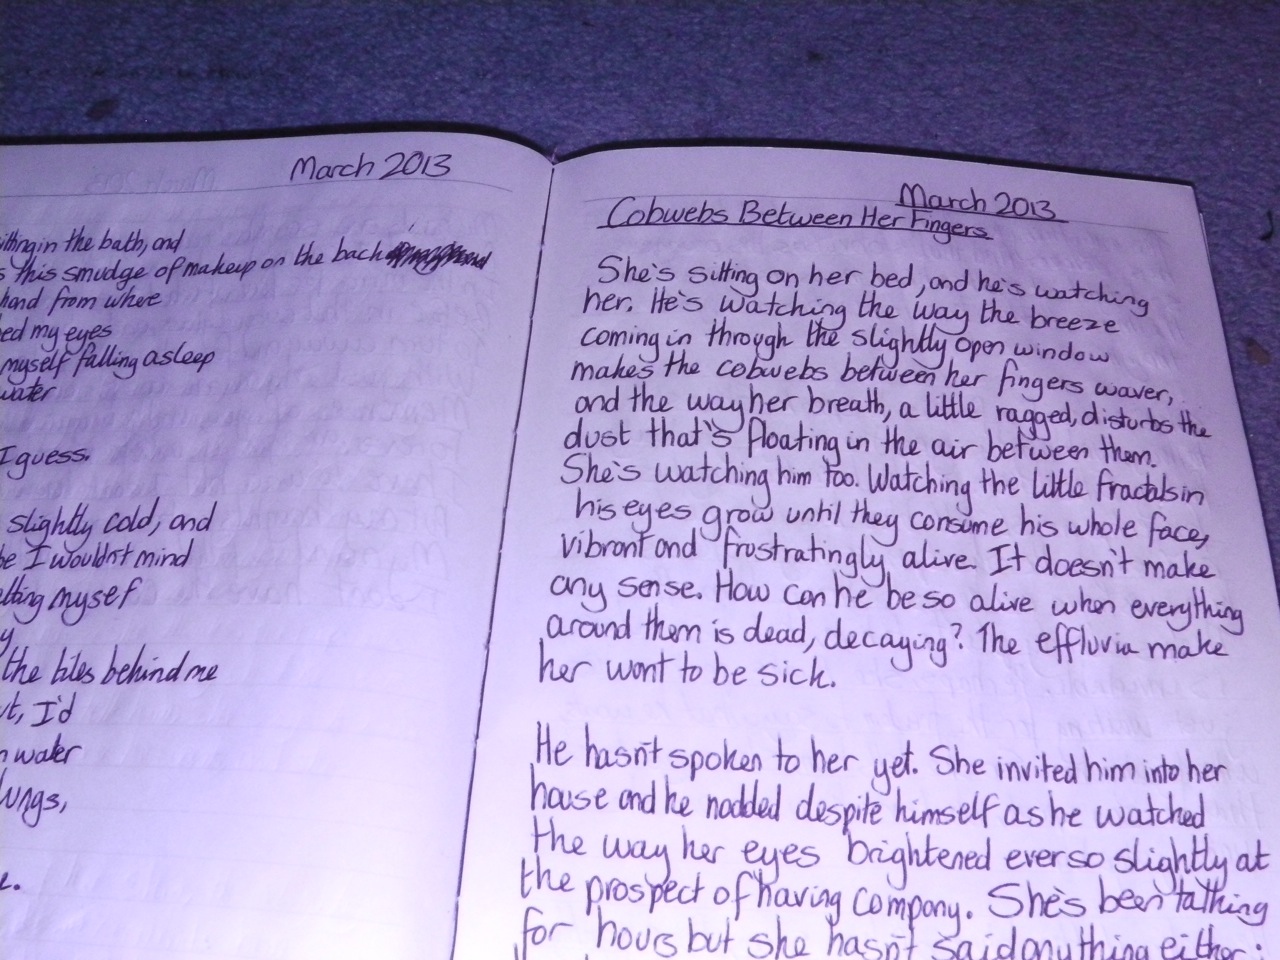 March 2013
sitting in the bath, and
s this smudge of makeup on the back
hand from where
ed my eyes
myself falling asleep
water
I guess.
slightly cold, and
be I wouldn't mind
tting mysef
y
the tiles behind me
ut, I'd
n water
lungs,
e.
March 2013
Cobwebs Between Her Fingers
She's sitting on her bed, and he's watching
her. He's watching the way the breeze
coming in through the slightly open window
makes the cobwebs between her fingers waver,
and the way her breath, a little ragged, disturbs the
dust that's floating in the air between them.
She's watching him too. Watching the little fractals in
his eyes grow until they consume his whole face,
vibrant and frustratingly alive. It doesn't make
any sense. How can he be so alive when everything
around them is dead, decaying? The effluvia make
her want to be sick.
He hasn't spoken to her yet. She invited him into her
house and he nodded despite himself as he watched
the way her eyes brightened ever so slightly at
the prospect of having company. She's been talking
for hours but she hasn't said anything either;